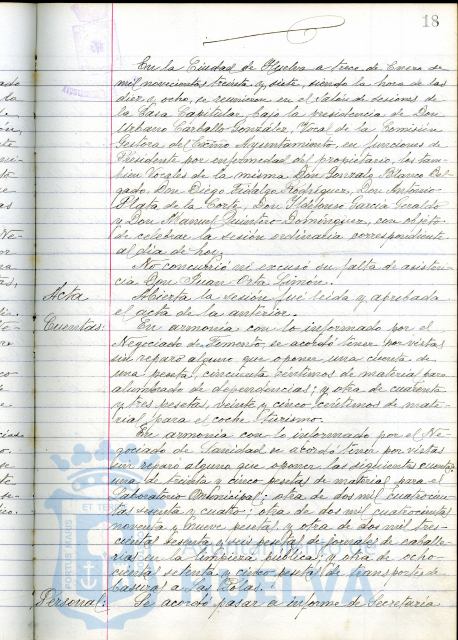 18
En la Ciudad de Huelva a trece de Enero de
mil novecientos treinta y siete, siendo la hora de las
diez y ocho, se reunieron en el Salón de sesiones de
la Casa Capitular, bajo la presidencia de Don
Urbano Carballo González, Vocal de la Comisión
Gestora del Excmo Ayuntamiento, en funciones de
Presidente por enfermedad del propietario, los tam-
bién Vocales de la misma Don Gonzalo Blanco Del-
gado, Don Diego Fidalgo Rodríguez, Don Antonio
Plata de la Corte, Don Ildefonso García Geraldo
y Don Manuel Quintero Domínguez, con objeto
de celebrar la sesión ordinaria correspondiente
al día de hoy.
No concurrió ni excusó su falta de asisten-
cia Don Juan Orta Limón.
Acta Abierta la sesión fué leída y aprobada
el acta de la anterior.
Cuentas: En armonía con lo informado por el
Negociado de Fomento, se acordó tener por vistas
sin reparo alguno que oponer una cuenta de
una peseta, cincuenta céntimos de material para
alumbrado de dependencias; y otra de cuarenta
y tres pesetas, veinte y cinco céntimos de mate-
rial para el coche turismo.
En armonía con lo informado por el Ne-
gociado de Sanidad se acordó tener por vistas
sin reparo alguno que oponer las siguientes cuentas:
una de treinta y cinco pesetas de material para el
Laboratorio Municipal; otra de dos mil cuatrocien-
tas y cuatro; otra de dos mil cuatrocientas
noventa y nueve pesetas y otra de dos mil tres-
cientas sesenta y seis pesetas de jornales de caballe-
rías en la limpieza pública; y otra de ocho-
cientas setenta y cinco pesetas de transportes de
basuras a las Colas.
Personal: Se acordó pasar a informe de Secretaría
PORTUS MARIS ET TERRÆ
HUELVA